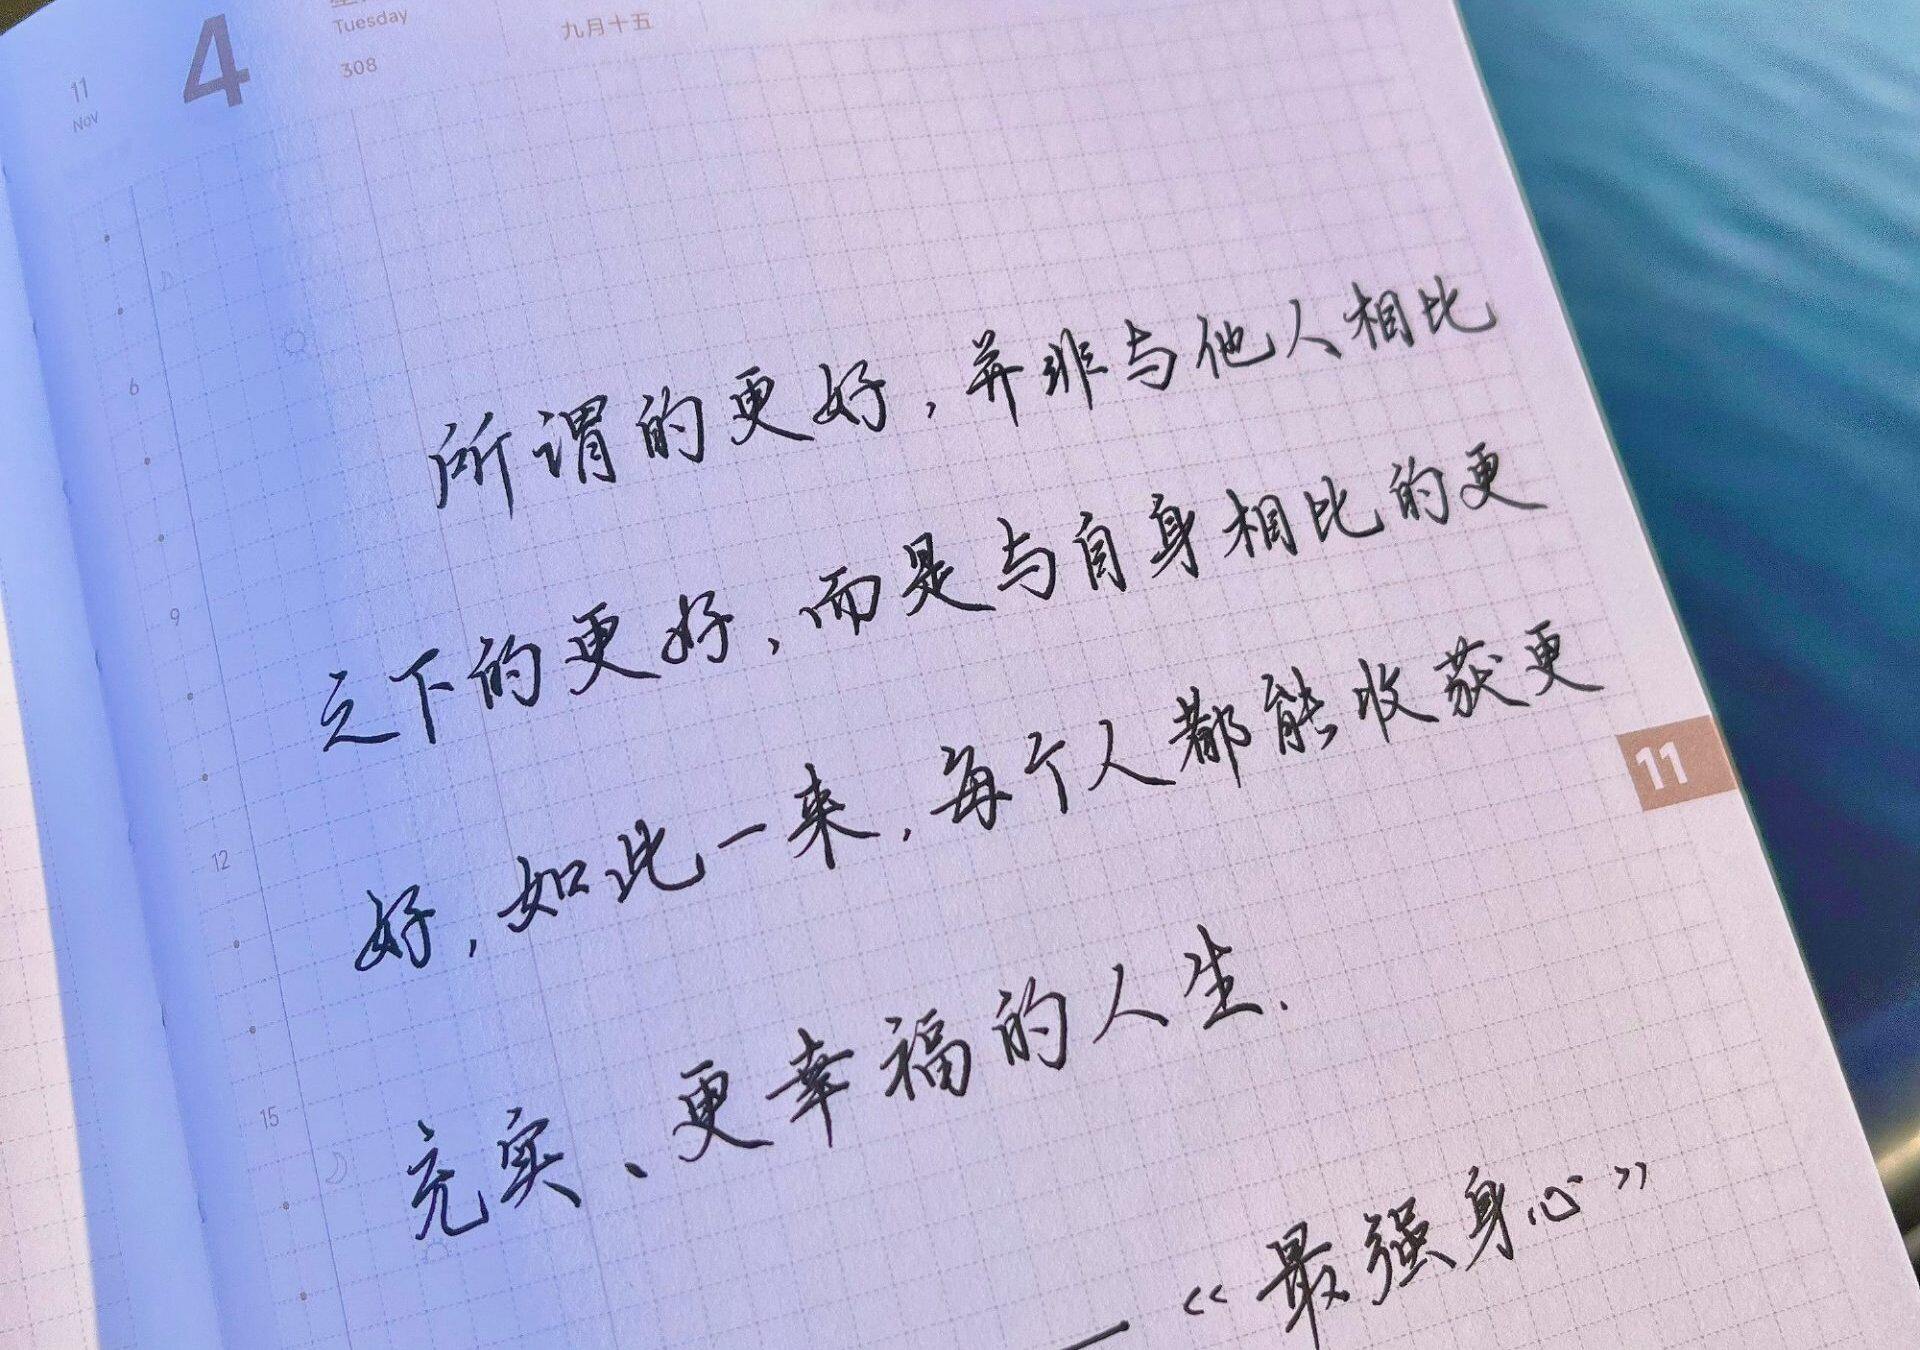 11
Nov
4
Tuesday
308
九月十五
6
9
12
15
所谓的更好，并非与他人相比
之下的更好，而是与自身相比的更
好，如此一来，每个人都能收获更
充实、更幸福的人生.
—《最强身心》
11